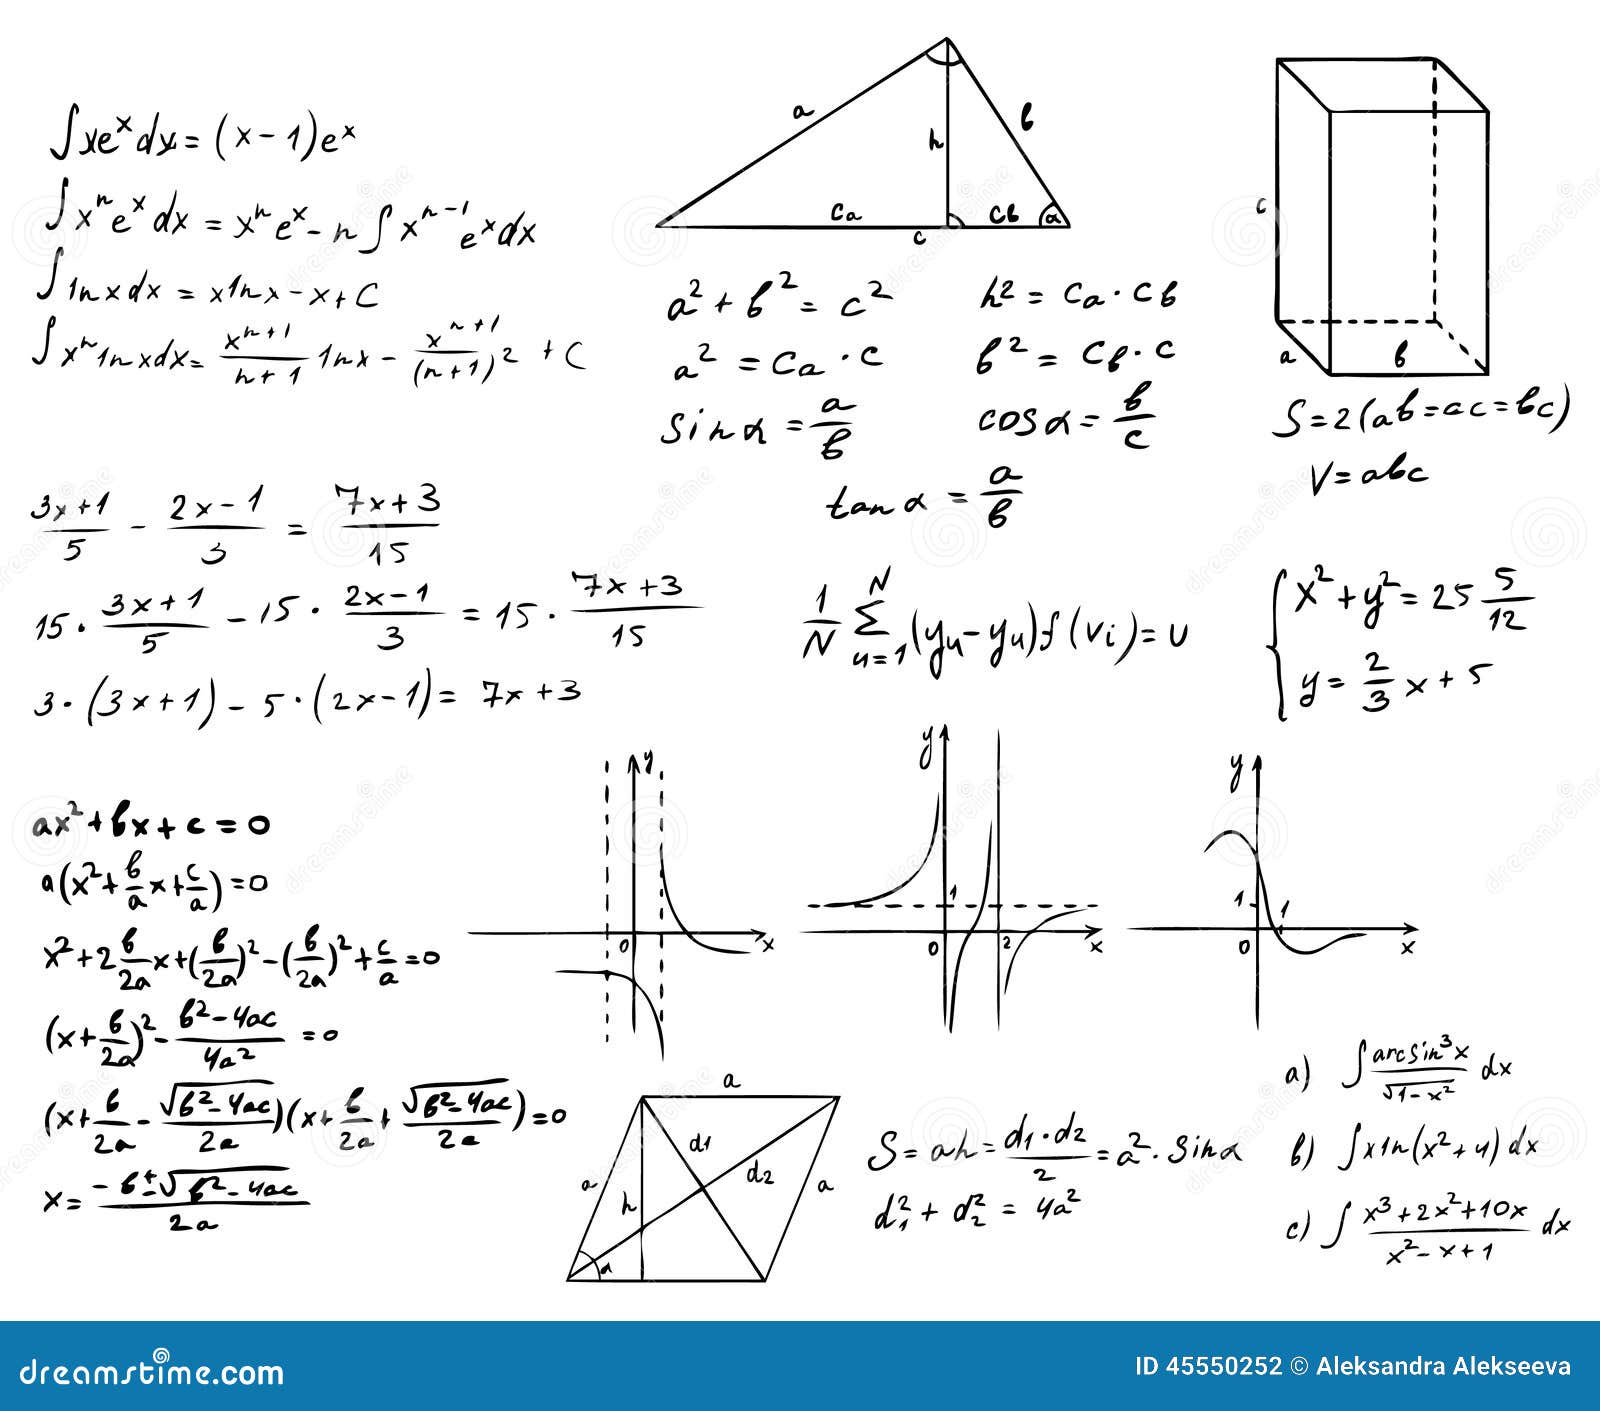 ∫xeˣdx = (x-1)eˣ
∫xⁿeˣdx = xⁿeˣ - n∫xⁿ⁻¹eˣdx
∫lnxdx = xlnx - x + C
∫xⁿlnxdx = xⁿ⁺¹/(n+1) lnx - xⁿ⁺¹/(n+1)² + C
a
b
h
Ca
Cb
α
c
a² + b² = c²
h² = Ca · Cb
a² = Ca · C
b² = Cb · C
sinα = a/b
cosα = b/c
tanα = a/b
c
a
b
S=2(ab=ac=bc)
V=abc
(3x+1)/5 - (2x-1)/3 = (7x+3)/15
15 · (3x+1)/5 - 15 · (2x-1)/3 = 15 · (7x+3)/15
3·(3x+1) - 5·(2x-1) = 7x+3
1/N Σ
N
u=1
(yu-yu)f(vi)=u
x²+y²=25 5/12
y = 2/3 x + 5
ax²+bx+c=0
a(x²+b/a x+c/a)=0
x²+2 b/2a x+(b/2a)²-(b/2a)²+c/a=0
(x+b/2a)²-(b²-4ac)/4a²=0
(x+b/2a-√(b²-4ac)/2a)(x+b/2a+√(b²-4ac)/2a)=0
x=(-b±√(b²-4ac))/2a
y
0
x
y
1
0
2
x
y
1
1
0
x
a
d1
d2
a
a
h
α
S = ah = (d1·d2)/2 = a²·sinα
d₁² + d₂² = 4a²
a) ∫ arcsin³x/√(1-x²) dx
b) ∫xln(x²+4)dx
c) ∫ (x³+2x²+10x)/(x²-x+1) dx
dreamstime
ID 45550252 © Aleksandra Alekseeva